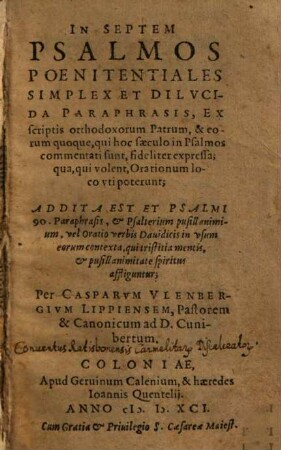 IN SEPTEM
PSALMOS
POENITENTIALES
SIMPLEX ET DILVCI-
DA PARAPHRASIS, EX
scriptis orthodoxorum Patrum, & eo-
rum quoque, qui hoc sæculo in Psalmos
commentati sunt, fideliter expressa;
qua, qui volent, Orationum lo-
co vti poterunt;
ADDITA EST ET PSALMI
90. Paraphrasis, & Psalterium pusillanimi-
um, vel Oratio verbis Dauidicis in vsum
eorum contexta, qui tristitia mentis,
& pusillanimitate spiritus
affliguntur;
Per CASPARVM VLENBER-
GIVM LIPPIENSEM, Pastorem
& Canonicum ad D. Cuni-
bertum.
Conuentus Ratisbonensis Carmelitar. Discalceator.
COLONIAE,
Apud Geruinum Calenium, & hæredes
Ioannis Quentelij.
ANNO cIɔ. Iɔ. XCI.
Cum Gratia & Priuilegio S. Cæsareæ Maiest.